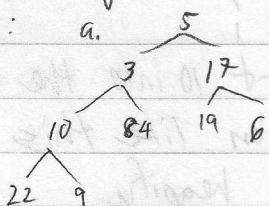 a.
5
3 17
10 84 19 6
22 9